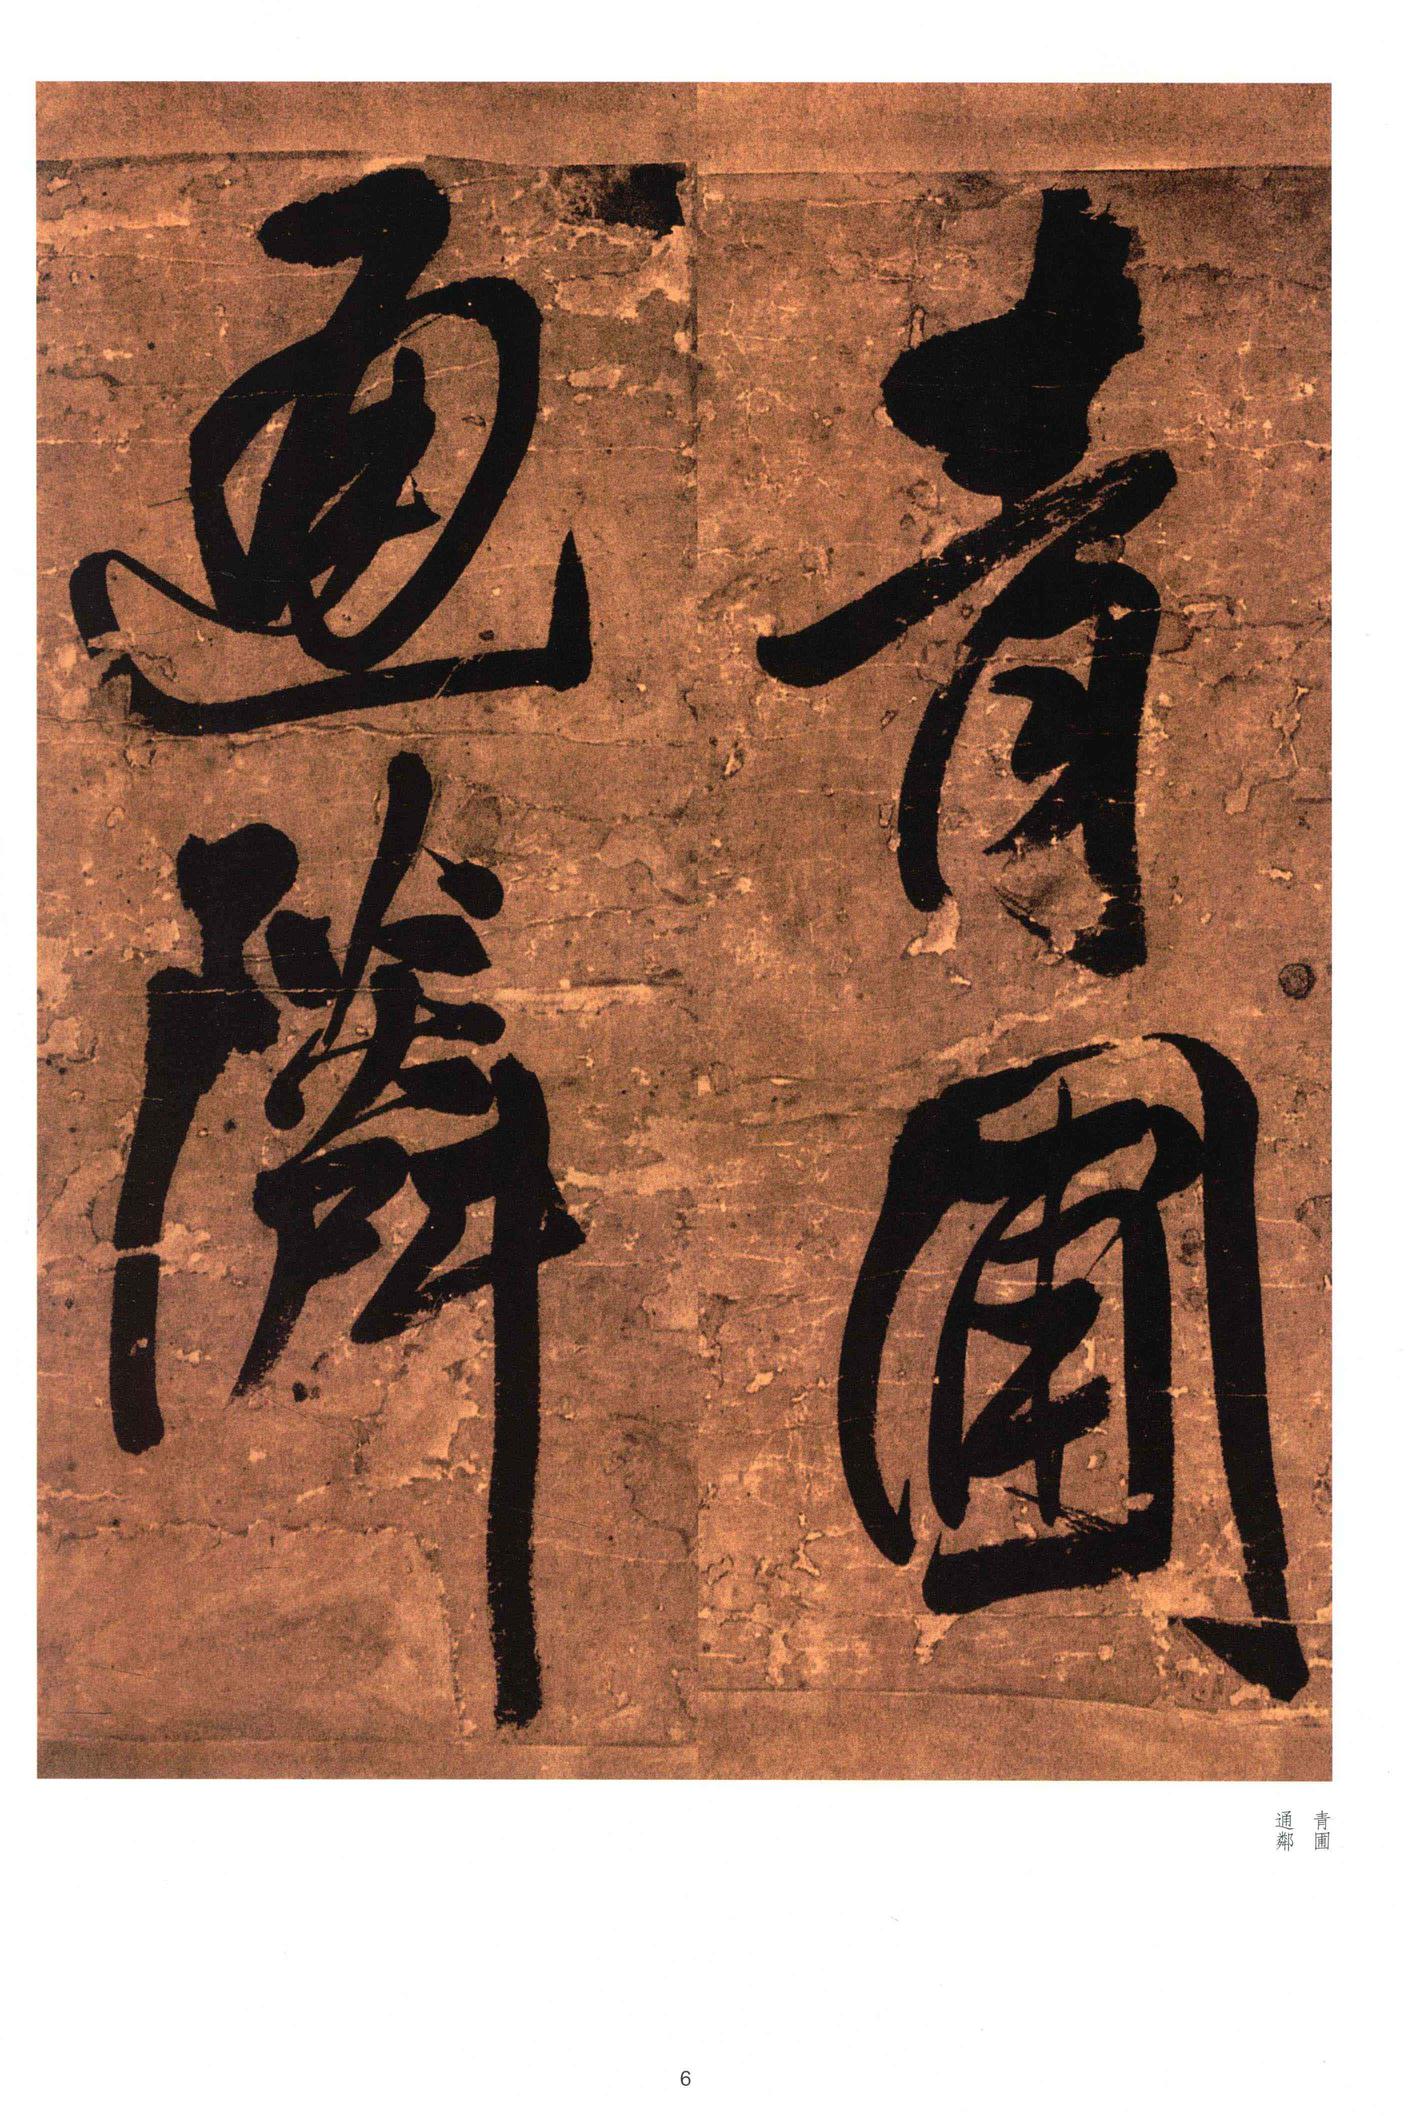 青圃
通鄰
青圃
通鄰
6